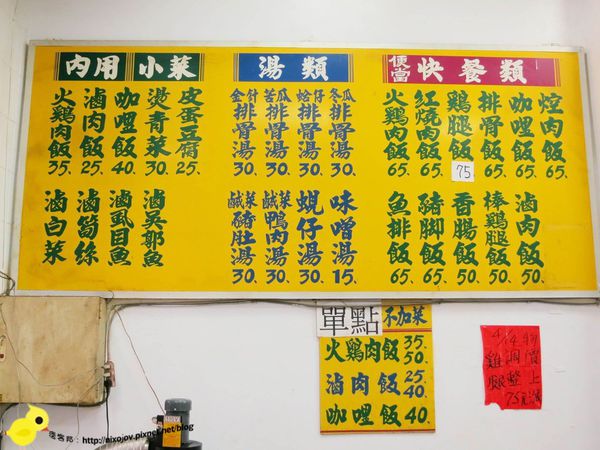 內用 小菜
火鷄肉飯 35.
滷肉飯 25.
咖哩飯 40.
燙青菜 30.
皮蛋豆腐 25.
滷白菜
滷筍絲
滷虱目魚
滷吳郭魚
湯類
金針排骨湯 30.
苦瓜排骨湯 30.
蛤仔排骨湯 30.
冬瓜排骨湯 30.
鹹菜豬肚湯 30.
鹹菜鴨肉湯 30.
蜆仔湯 30.
味噌湯 15.
便當 快餐類
火鷄肉飯 65.
紅燒肉飯 65.
鷄腿飯 75
排骨飯 65.
咖哩飯 65.
焢肉飯 65.
魚排飯 65.
豬脚飯 65.
香腸飯 50.
棒鷄腿飯 50.
滷肉飯 50.
單點 不加菜
火鷄肉飯 35. 50.
滷肉飯 25. 40.
咖哩飯 40.
雞腿
調整
75元
痞客邦：http://nixojov.pixnet.net/blog